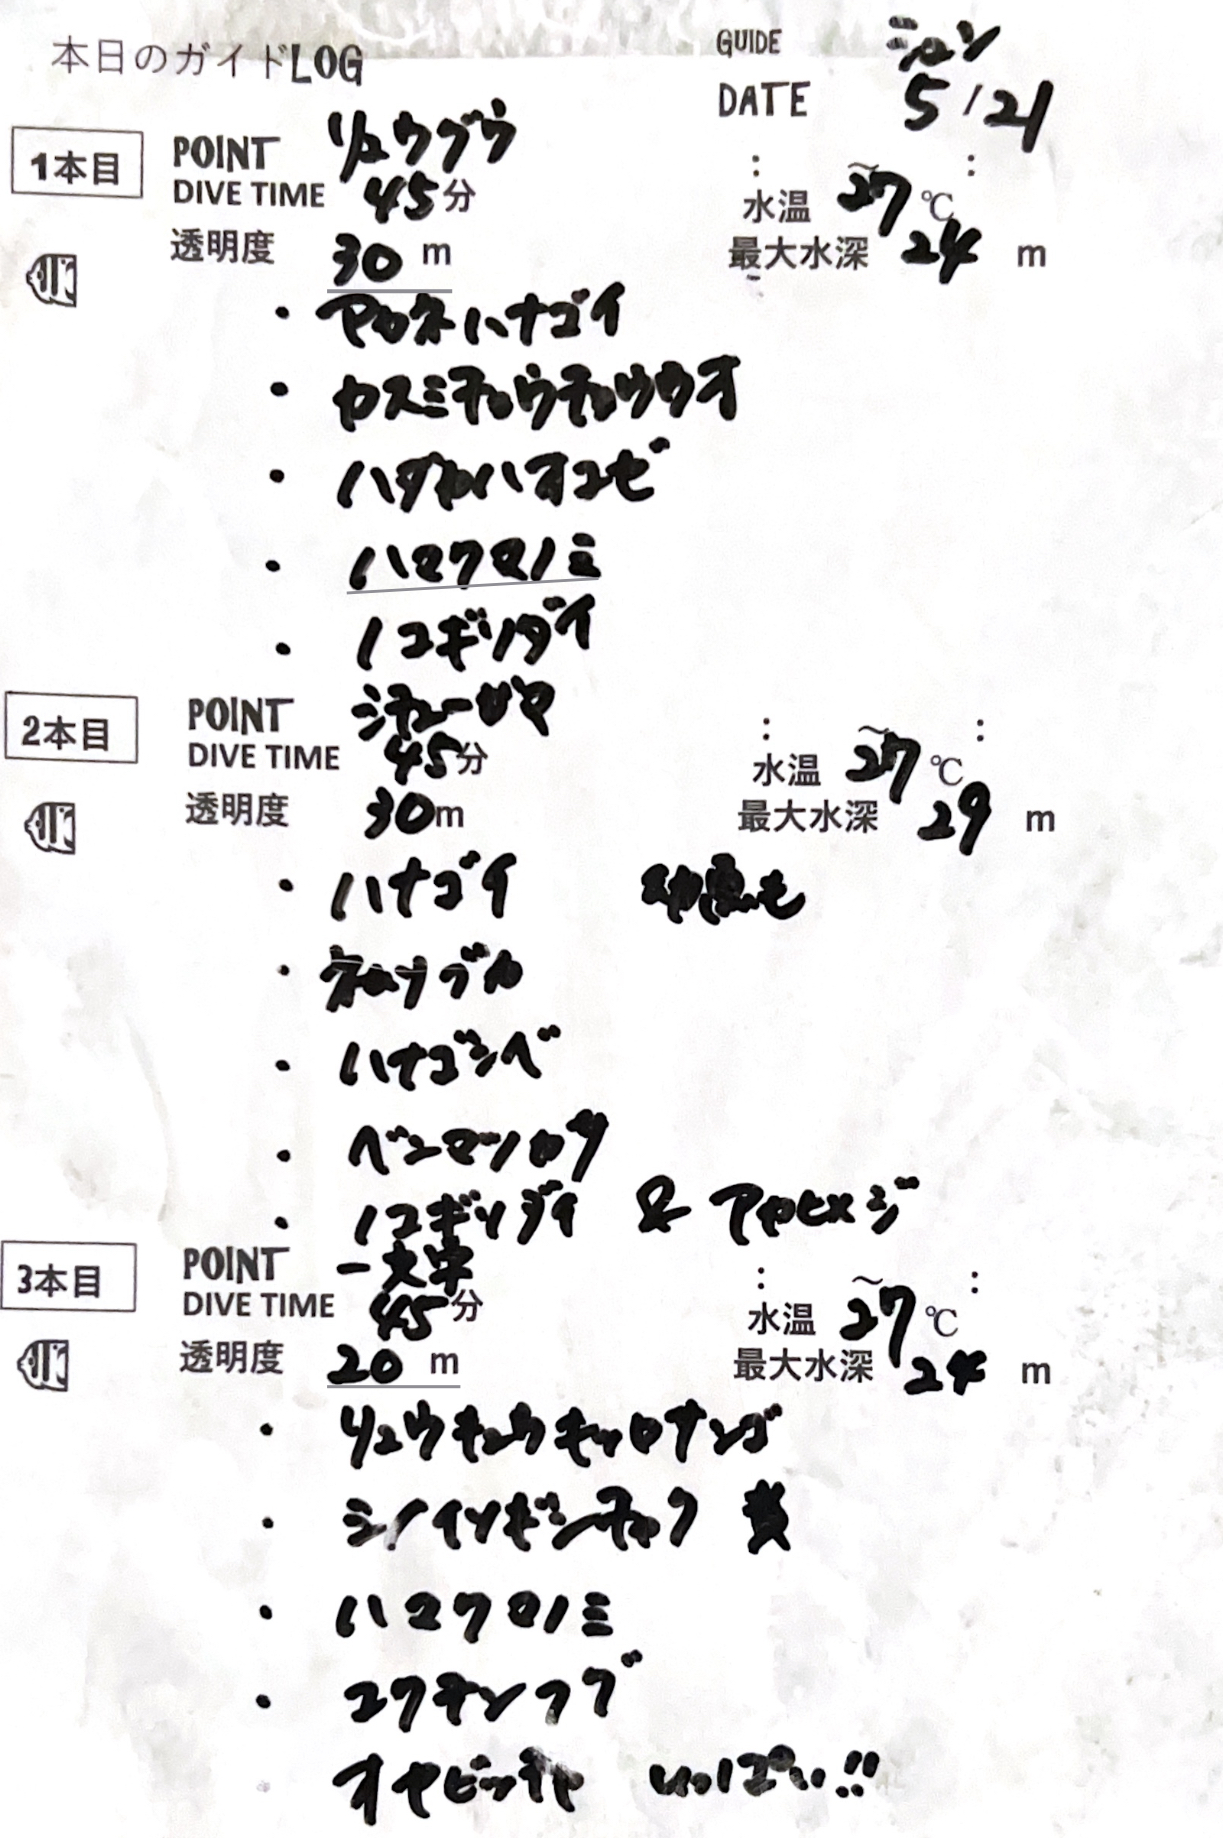 本日のガイドLOG
GUIDE シュン
DATE 5/21
1本目
POINT リュウグウ
DIVE TIME 45分
: ~ :
水温 27℃
透明度 30 m
最大水深 24 m
・アカネハナゴイ
・カスミチョウチョウウオ
・ハダカハオコゼ
・ハマクマノミ
・ノコギリダイ
2本目
POINT シチューガマ
DIVE TIME 45分
: ~ :
水温 27℃
透明度 30m
最大水深 29 m
・ハナゴイ 幼魚も
・ネムリブカ
・ハナゴンベ
・ベンマツカサ
・ノコギリダイ & アカヒメジ
3本目
POINT 一大学
DIVE TIME 45分
: ~ :
水温 27℃
透明度 20 m
最大水深 24 m
・リュウキュウキッカサンゴ
・シライソギンチャク
・ハマクマノミ
・コクテンフグ
オヤビッチャ いっぱい!!